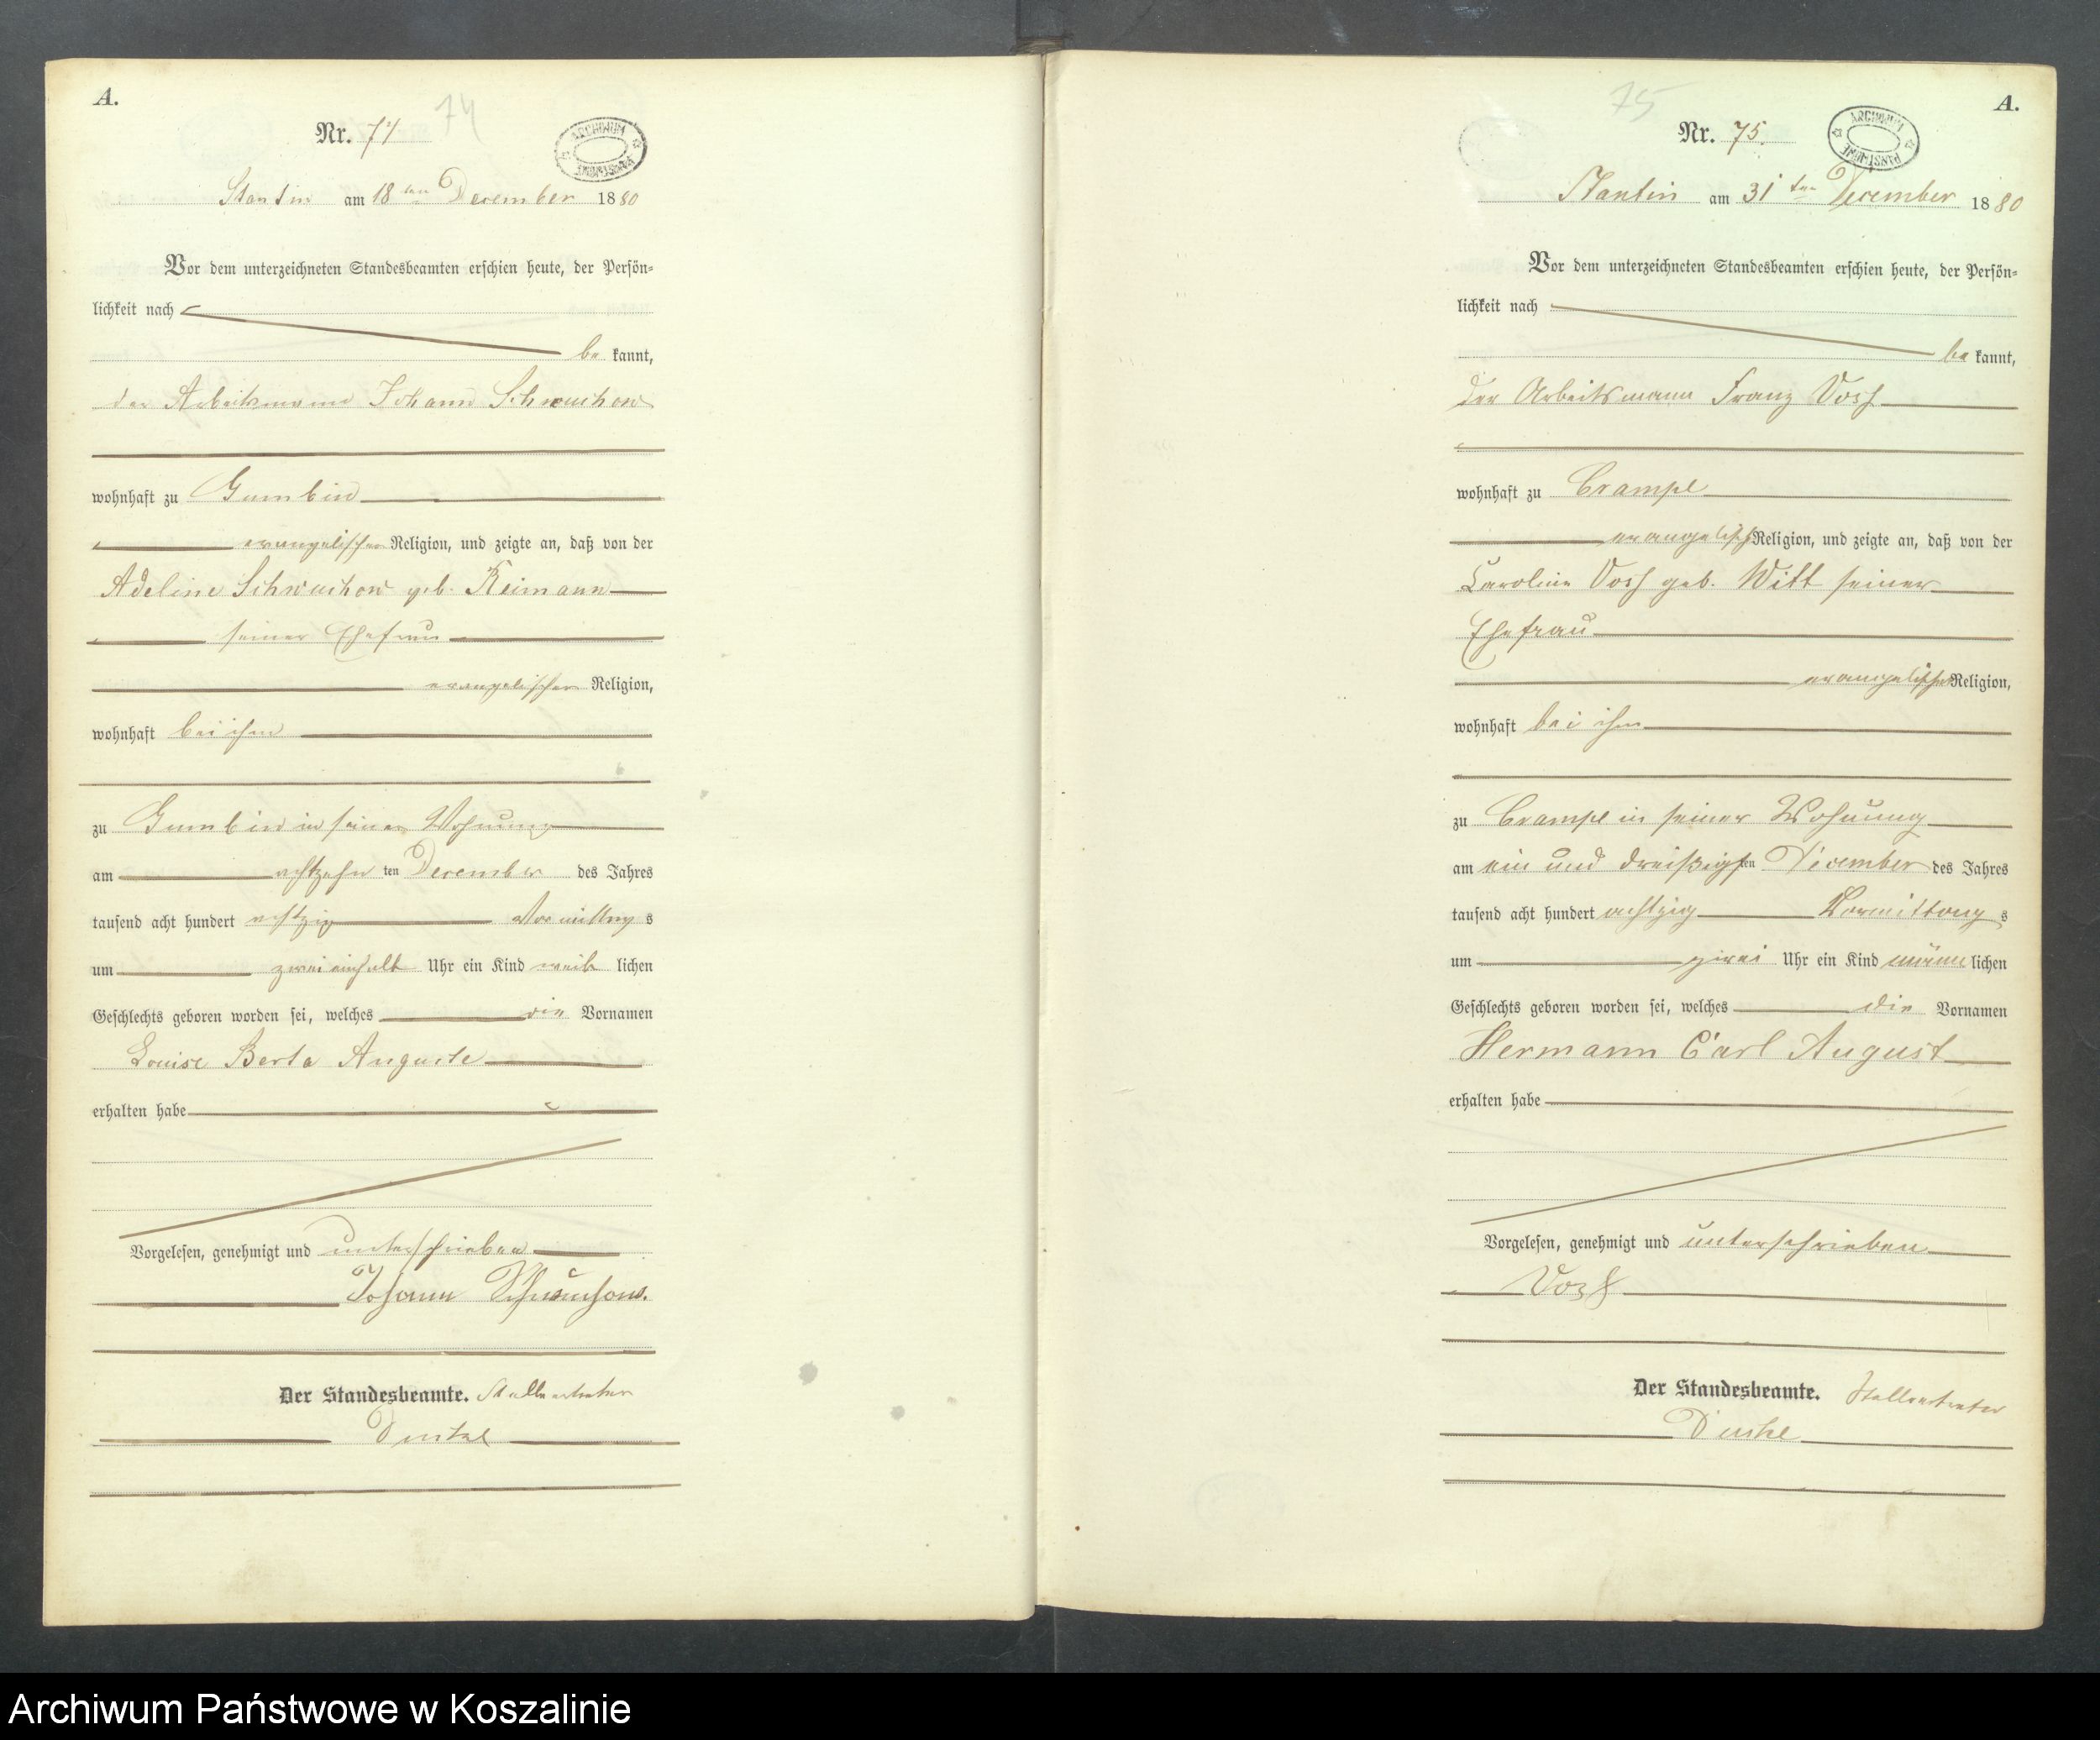 A.
74
Nr. 74
ARCHIWUM PAŃSTWOWE
Stantin am 18ten December 1880
Vor dem unterzeichneten Standesbeamten erschien heute, der Persön-
lichkeit nach
be kannt,
der Arbeitsmann Johann Schwuchow
wohnhaft zu Gumbin
evangelischer Religion, und zeigte an, daß von der
Adeline Schwuchow geb. Reimann
seiner Ehefrau
evangelischer Religion,
wohnhaft bei ihm
zu Gumbin in seiner Wohnung
am achtzehn ten December des Jahres
tausend acht hundert achtzig Vormittag s
um zwei einhalb Uhr ein Kind weib lichen
Geschlechts geboren worden sei, welches die Vornamen
Louise Berta Auguste
erhalten habe
Vorgelesen, genehmigt und unterschrieben
Johann Schwuchow.
Der Standesbeamte. Stellvertreter
A.
75
Nr. 75.
ARCHIWUM PAŃSTWOWE
Stantin am 31ten December 1880
Vor dem unterzeichneten Standesbeamten erschien heute, der Persön-
lichkeit nach
be kannt,
der Arbeitsmann Franz Vosh
wohnhaft zu Crampe
evangelisch Religion, und zeigte an, daß von der
Caroline Vosh geb. Witt seiner
Ehefrau
evangelischer Religion,
wohnhaft bei ihm
zu Crampe in seiner Wohnung
am ein und dreißigsten December des Jahres
tausend acht hundert achtzig Vormittag s
um zwei Uhr ein Kind männ lichen
Geschlechts geboren worden sei, welches die Vornamen
Hermann Carl August
erhalten habe
Vorgelesen, genehmigt und unterschrieben
Der Standesbeamte. Stellvertreter
Archiwum Państwowe w Koszalinie